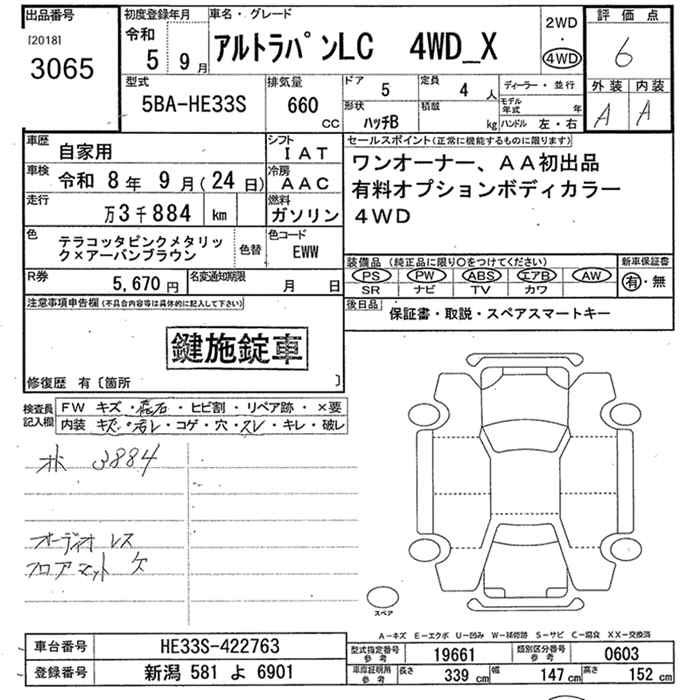 出品番号
[2018]
3065
初度登録年月
令和
5 9月
車名・グレード
アルトラパンLC 4WD_X
2WD
・
4WD
評価点
6
外装 内装
A A
型式
5BA-HE33S
排気量
660
CC
ドア
5
定員
4 人
形状
ハッチB
積載
kg
ディーラー・並行
モデル年式 年
ハンドル 左・右
車歴
自家用
シフト
IAT
車検
令和 8年 9月(24日)
冷房
AAC
走行
万3千884 km
燃料
ガソリン
色
テラコッタピンクメタリッ
ク×アーバンブラウン
色替
色コード
EWW
R券
5,670 円
名変通知期限
月 日
セールスポイント(正常に機能するものに限ります)
ワンオーナー、AA初出品
有料オプションボディカラー
4WD
装備品(純正品に限り○をつけてください)
PS PW ABS エアB AW
SR ナビ TV カワ
新車保証書
有・無
後日品
保証書・取説・スペアスマートキー
注意事項申告欄(不具合内容等は具体的に記入して下さい)
鍵施錠車
修復歴 有〔箇所 〕
検査員
記入欄
FW キズ・飛石・ヒビ割・リペア跡・×要
内装 キズ・汚レ・コゲ・穴・スレ・キレ・破レ
3884
オーディオ レス
フロアマット 欠
スペア
A-キズ E-エクボ U-凹み W-補修跡 S-サビ C-腐食 XX-交換済
車台番号
HE33S-422763
登録番号
新潟 581 よ 6901
型式指定番号
参考
19661
類別区分番号
参考
0603
車車証明用
参考
長さ 339 cm 幅 147 cm 高さ 152 cm